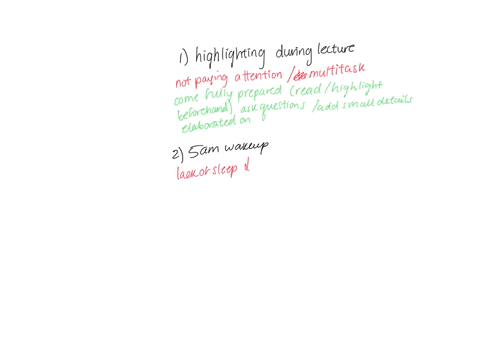 1) highlighting during lecture
not paying attention / multitask
come fully prepared (read/highlight
beforehand) ask questions /add small details
elaborated on
2) 5am wakeup
lack of sleep